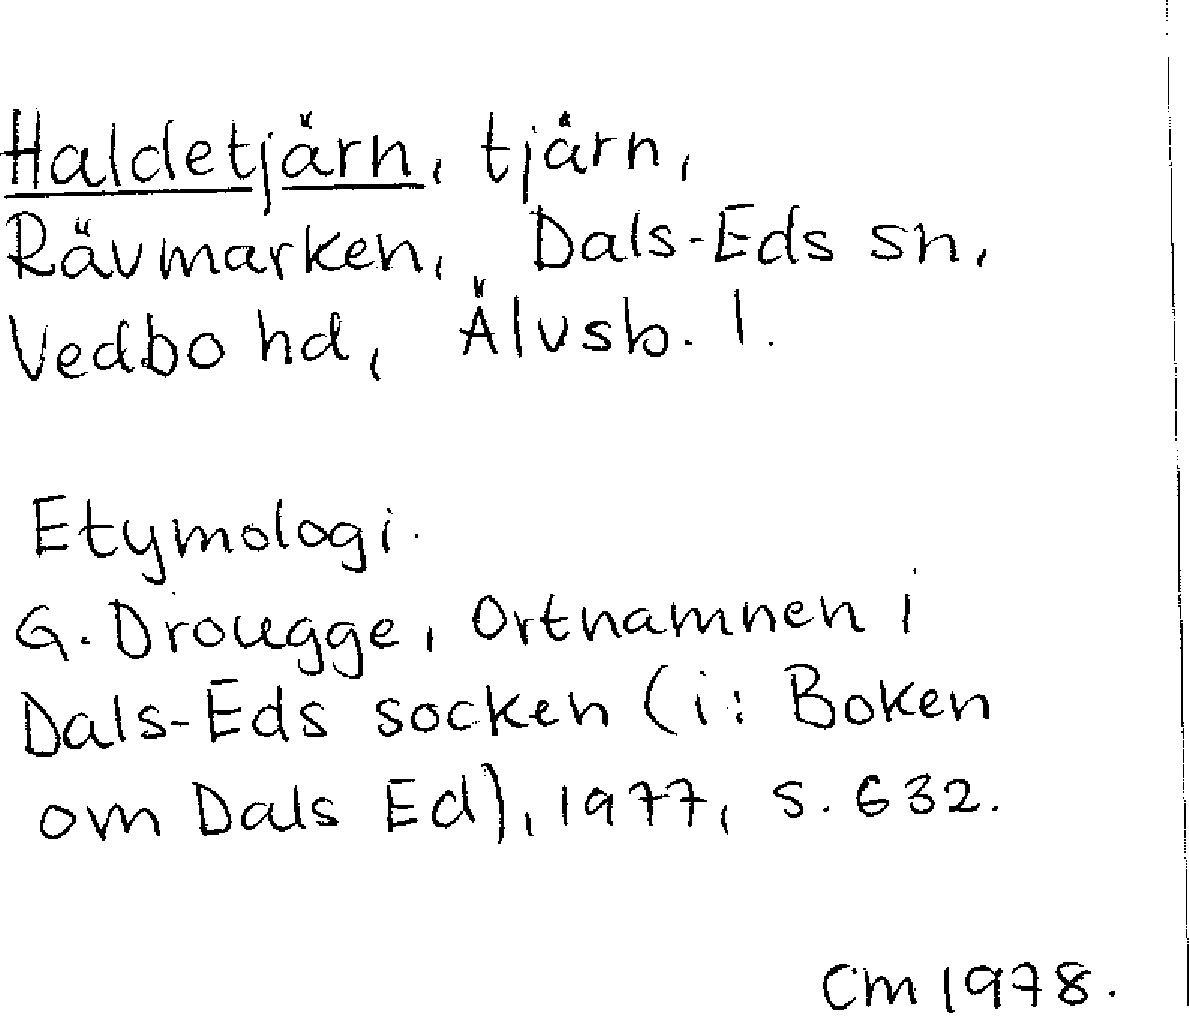 Haldetjärn, tjärn,
Rävmarken, Dals-Eds sn,
Vedbo hd, Älvsb. l.
Etymologi.
G. Drougge, Ortnamnen i
Dals-Eds socken (i: Boken
om Dals Ed), 1977, s. 632.
Cm 1978.